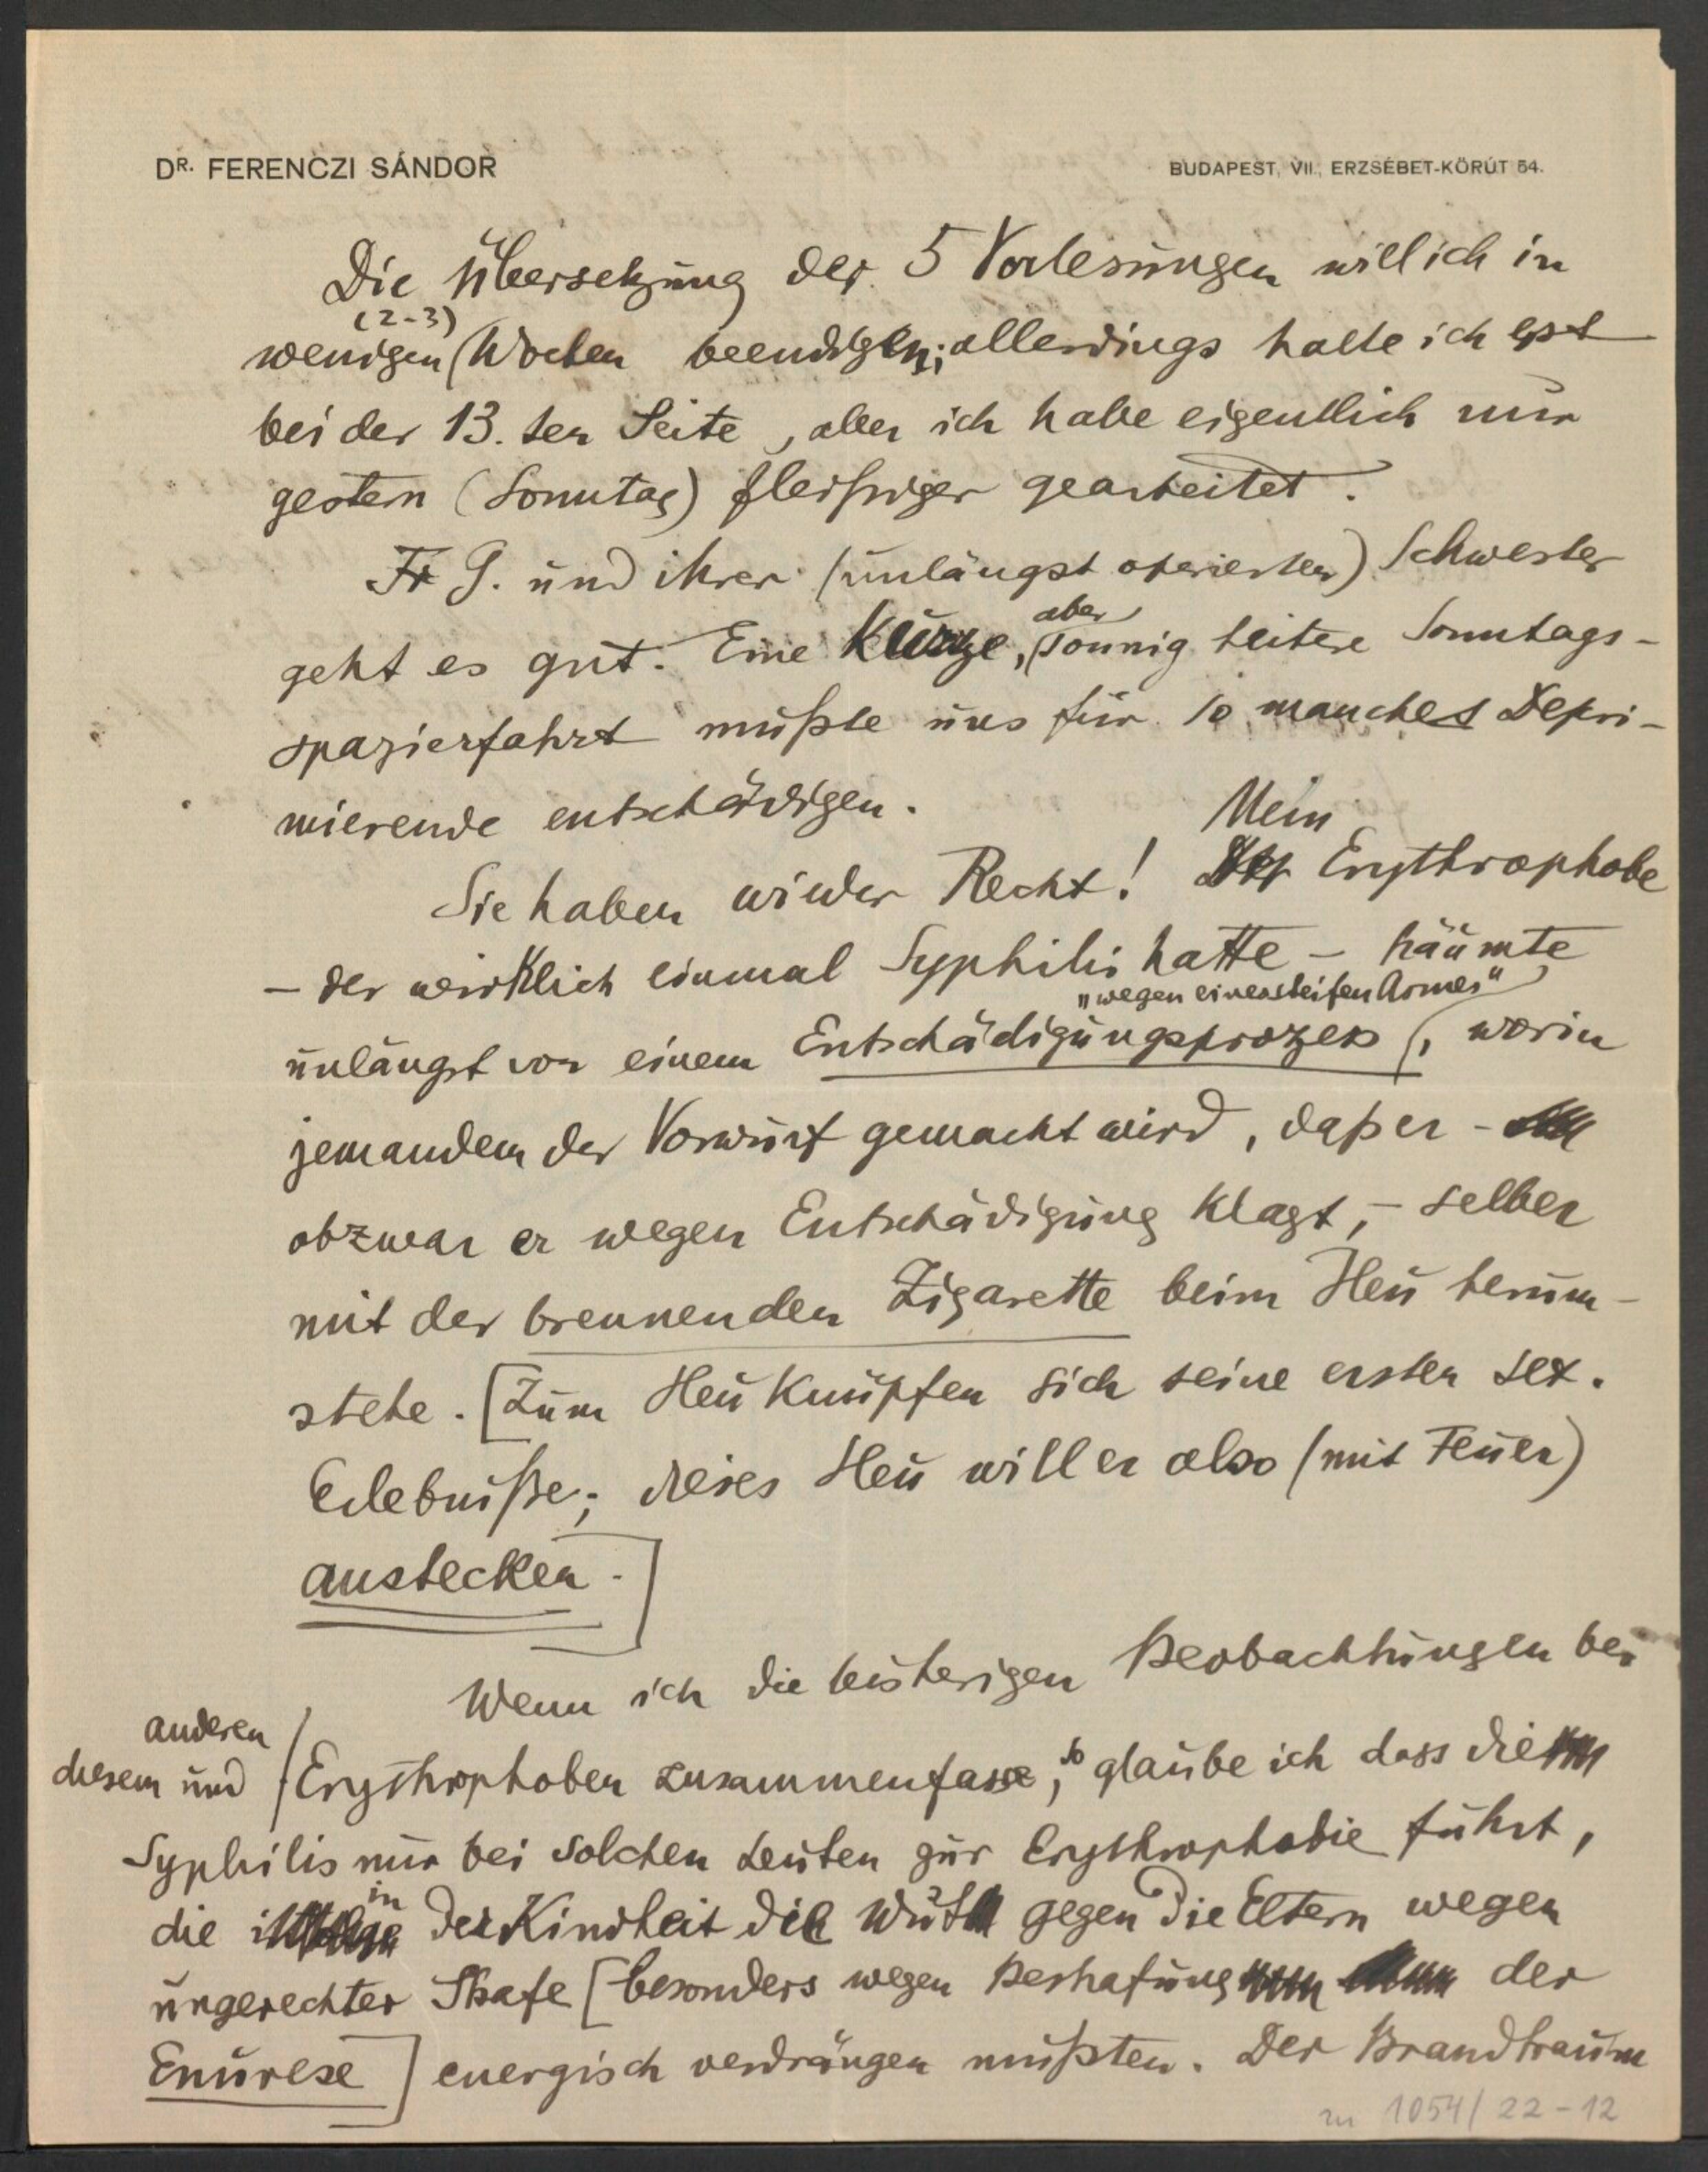 DR. FERENCZI SÁNDOR
BUDAPEST, VII., ERZSÉBET-KÖRÚT 54.
Die Übersetzung der 5 Vorlesungen will ich in
(2-3)
wenigen Wochen beendigen; allerdings halte ich erst
bei der 13. ten Seite, aber ich habe eigentlich nur
gestern (Sonntag) fleißiger gearbeitet.
Fr G. und ihrer (unlängst operierten) Schwester
aber
geht es gut. Eine kurze, sonnig heitere Sonntags-
spazierfahrt mußte uns für so manches Depri-
mierende entschädigen.
Mein
Sie haben wieder Recht! Der Erythrophobe
– der wirklich einmal Syphilis hatte – träumte
"wegen eines steifen Armes"
unlängst von einem Entschädigungsprozess, worin
jemandem der Vorwurf gemacht wird, daß er -
obzwar er wegen Entschädigung klagt, – selber
mit der brennenden Zigarette beim Heu herum-
stehe. [Zum Heu knüpfen sich seine ersten sex.
Erlebniße; dieses Heu will er also (mit Feuer)
anstecken.]
Wenn ich die bisherigen Beobachtungen bei
anderen
diesem und Erythrophoben zusammenfasse, so glaube ich dass die
Syphilis nur bei solchen Leuten zur Erythrophobie führt,
die in der Kindheit die Wut gegen die Eltern wegen
ungerechter Strafe [besonders wegen Bestrafung der
Enurese] energisch verdrängen mußten. Der Brandtraum
zu 1054/22-12